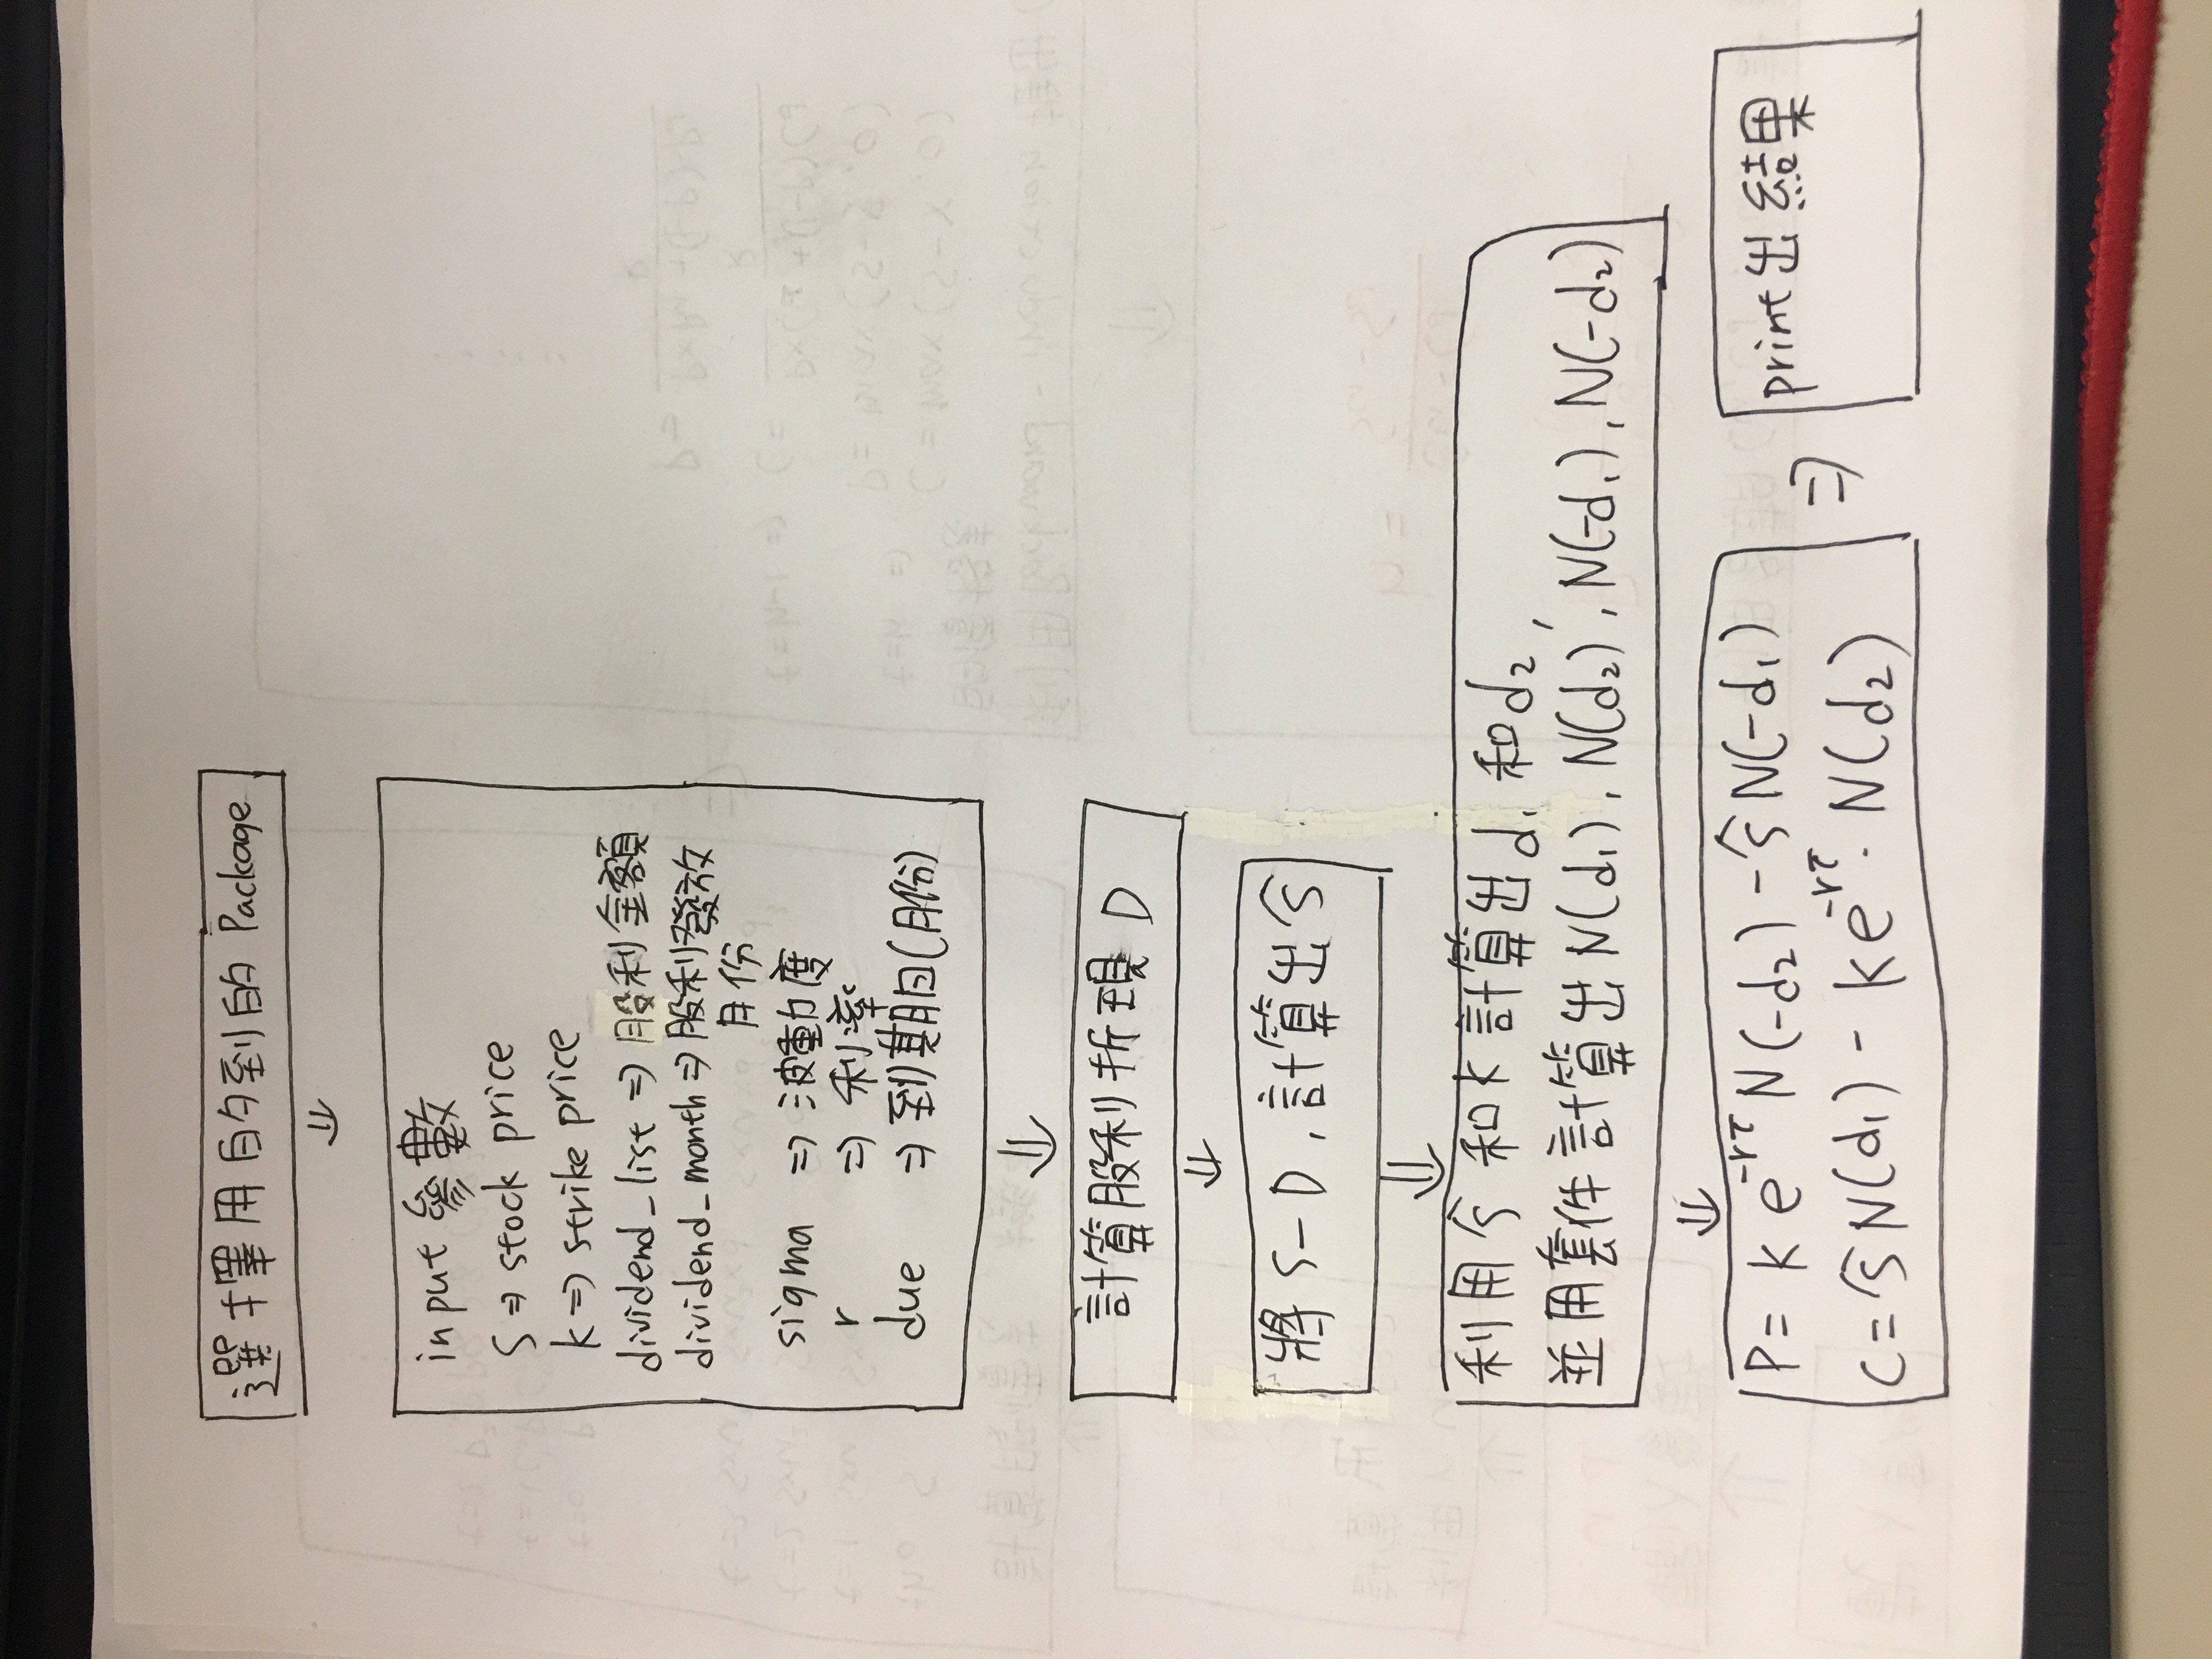 選擇用的到的 Package
⇓
input 參數
S ⇒ stock price
k ⇒ strike price
dividend_list ⇒ 股利金額
dividend_month ⇒ 股利發放
月份
sigma ⇒ 波動度
r ⇒ 利率
due ⇒ 到期日(月份)
⇓
計算股利折現 D
⇓
將 S-D, 計算出 Ŝ
⇓
利用 Ŝ 和 k 計算出 d₁ 和 d₂,
並用套件計算出 N(d₁), N(d₂), N(-d₁), N(-d₂)
⇓
P = k e^{-rτ} N(-d₂) - Ŝ N(-d₁)
C = Ŝ N(d₁) - k e^{-rτ} · N(d₂)
⇒ print 出結果